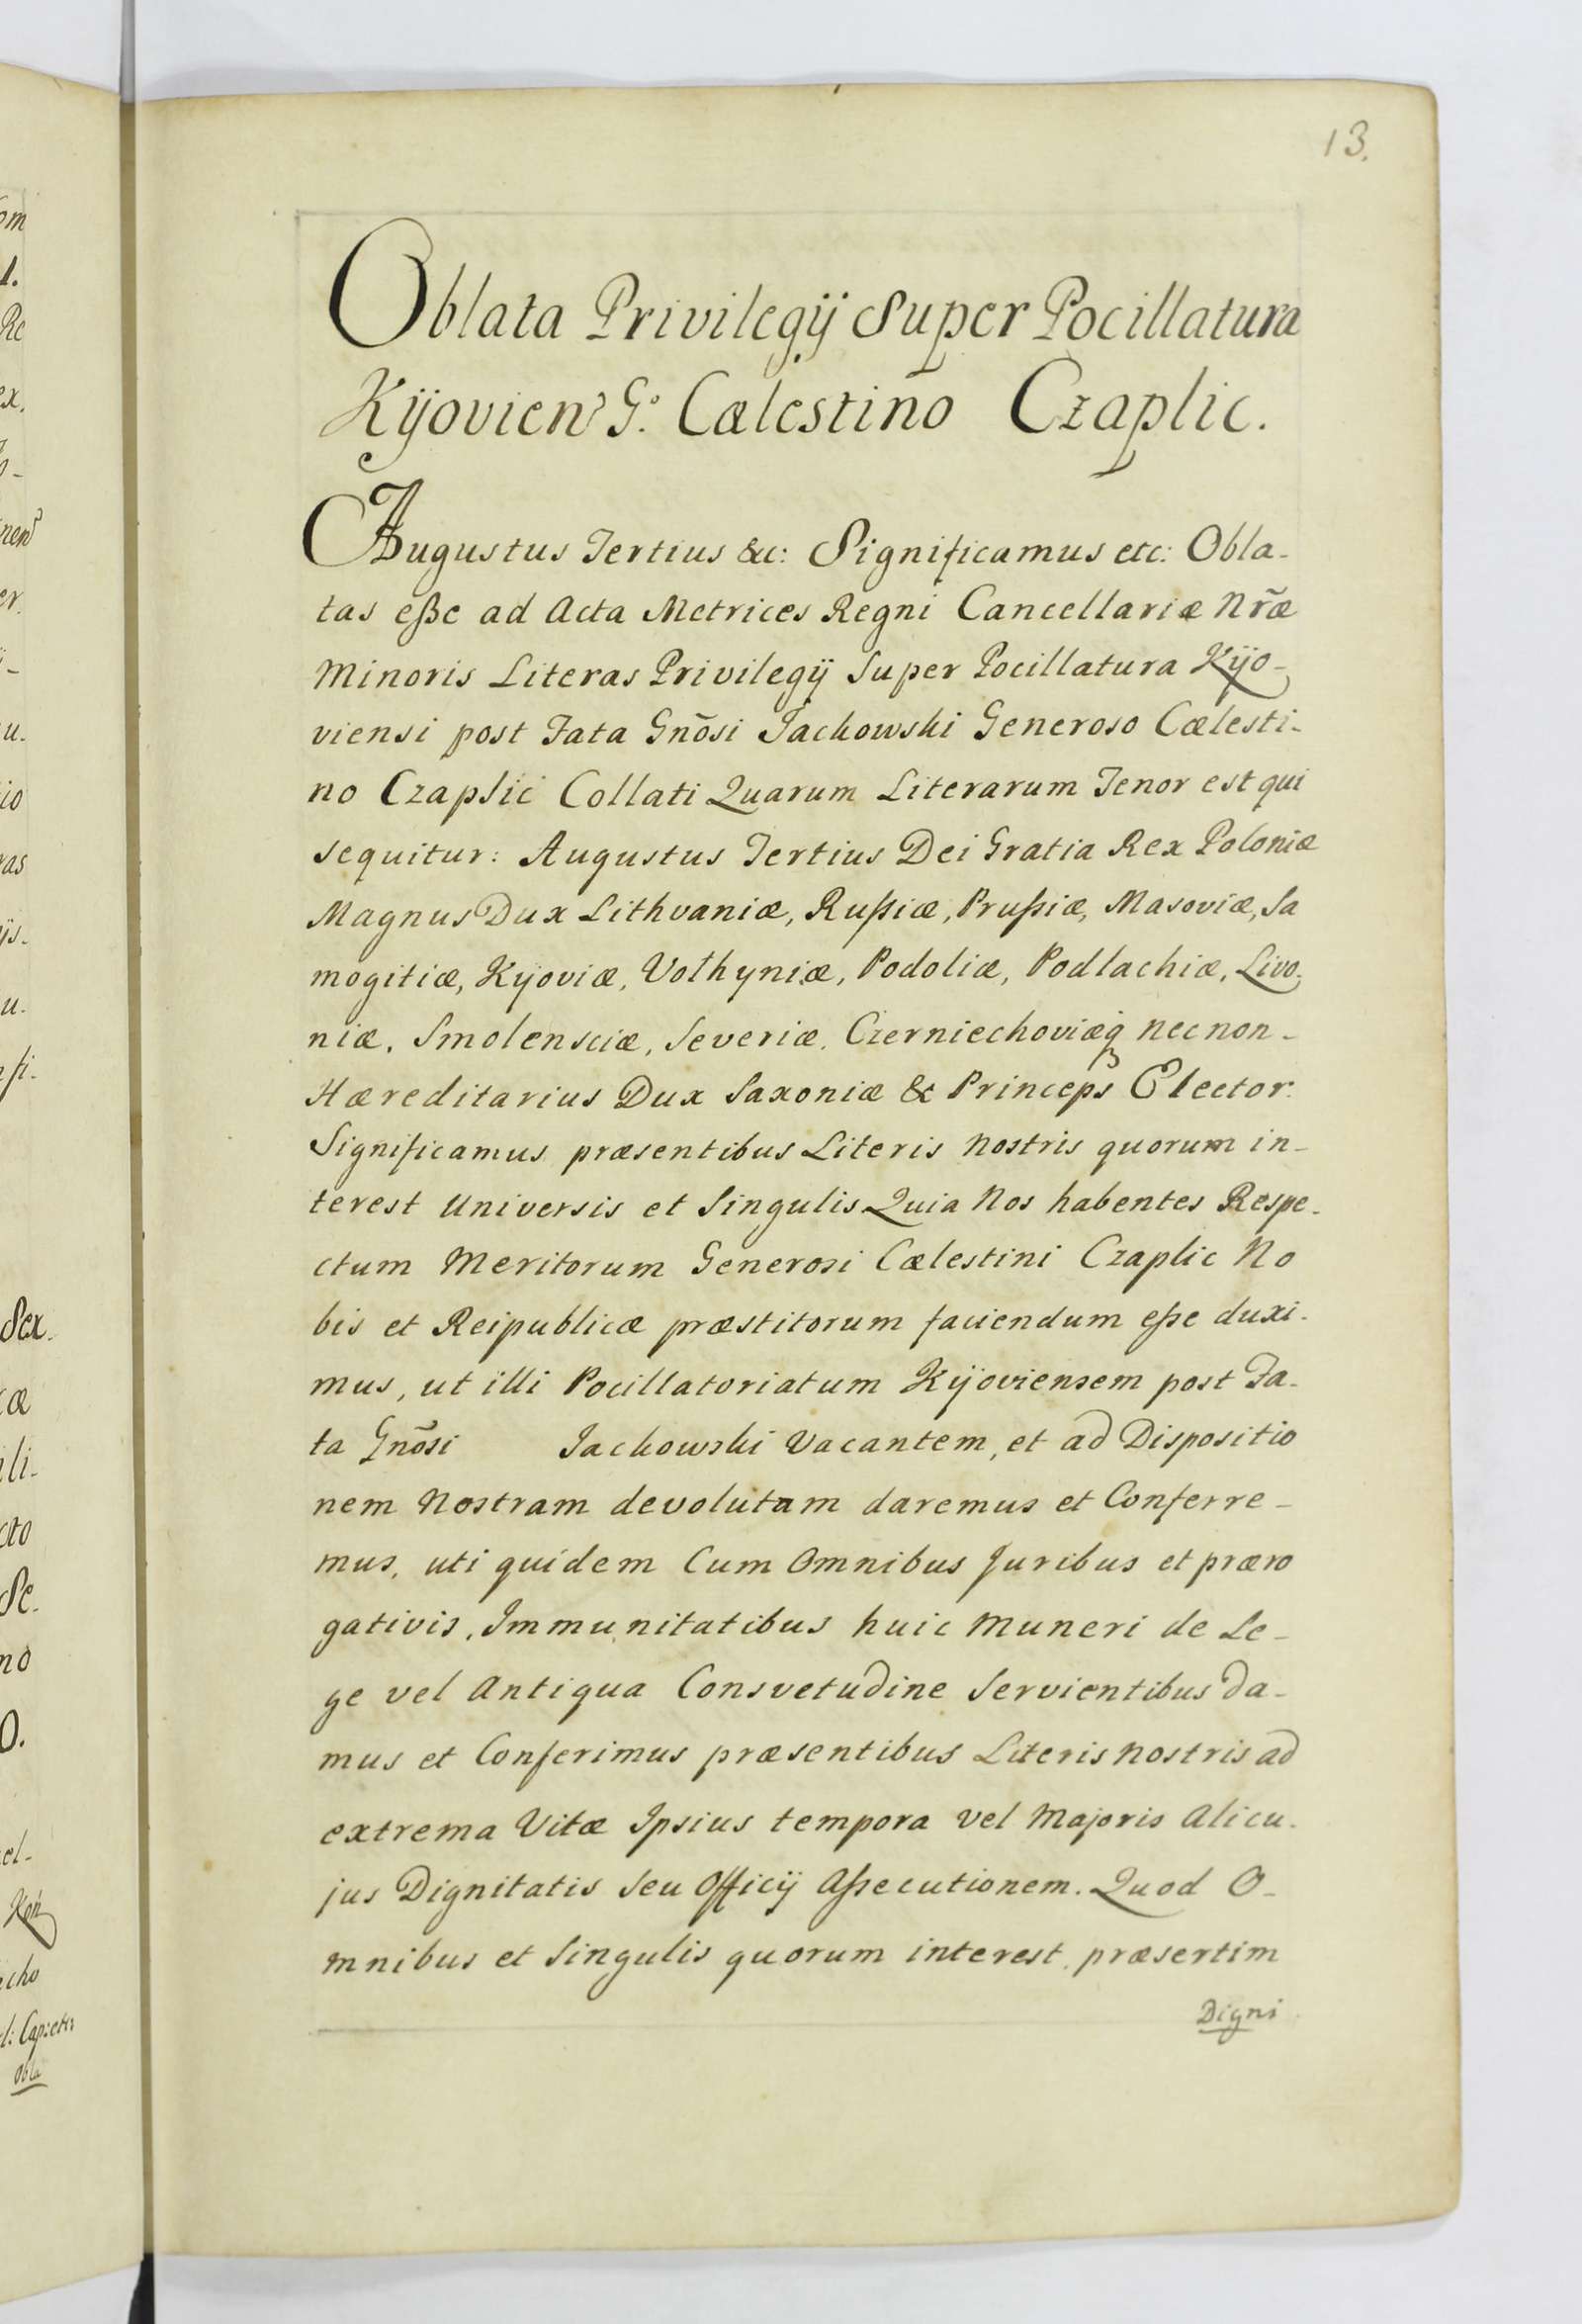 13.
Oblata Privilegij Super Pocillatura
Kijovien G.o Cælestino Czaplic.
Augustus Tertius &c: Significamus etc: Obla-
tas eße ad Acta Metrices Regni Cancellariæ Nr̃æ
Minoris Literas Privilegij Super Pocillatura Kijo-
viensi post Fata Gnõsi Jachowski Generoso Cælesti-
no Czaplic Collati Quarum Literarum Tenor est qui
sequitur: Augustus Tertius Dei Gratia Rex Poloniæ
Magnus Dux Lithvaniæ, Rußiæ, Prußiæ, Masoviæ, Sa
mogitiæ, Kijoviæ, Volhyniæ, Podoliæ, Podlachiæ, Livo-
niæ, Smolensciæ, Severiæ, Czerniechoviæq̃ necnon-
Hæreditarius Dux Saxoniæ & Princeps Elector.
Significamus præsentibus Literis Nostris quorum in-
terest Universis et Singulis Quia Nos habentes Respe-
ctum Meritorum Generosi Cælestini Czaplic No
bis et Reipublicæ præstitorum faciendum eße duxi-
mus, ut illi Pocillatoriatum Kijoviensem post Fa-
ta Gnõsi Jachowski Vacantem, et ad Dispositio
nem Nostram devolutam daremus et Conferre-
mus, uti quidem Cum Omnibus Juribus et præro
gativis, Immunitatibus huic Muneri de Le-
ge vel Antiqua Consvetudine Servientibus Da-
mus et Conferimus præsentibus Literis Nostris ad
extrema Vitæ Ipsius tempora vel Majoris Alicu-
jus Dignitatis seu Officij Aßecutionem. Quod O-
mnibus et Singulis quorum interest, præsertim
Digni